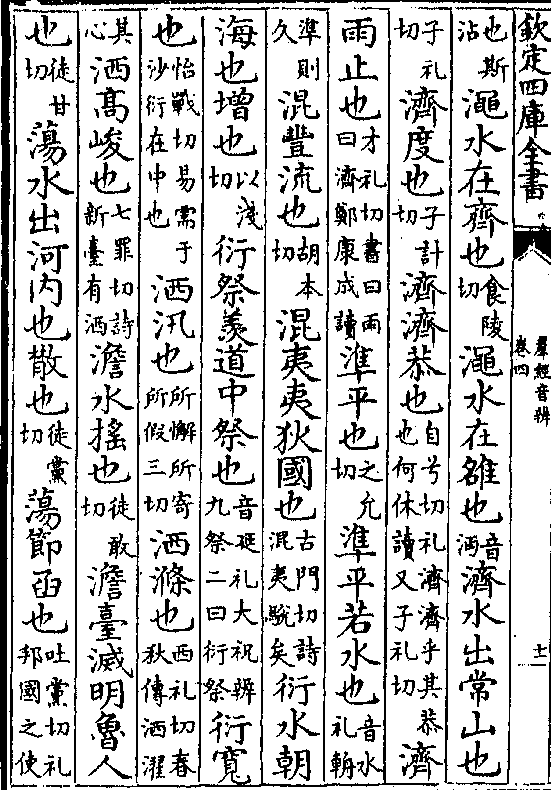 欽定四庫全書
羣經音辨
卷四
十一
也斯沾 澠水在齊也食陵切 澠水在雒也音沔 濟水出常山也
子礼切 濟度也子計切 濟濟恭也自兮切礼濟濟乎其恭也何休讀又子礼切 濟
雨止也才礼切書曰雨曰濟鄭康成讀 準平也之允切 準平若水也音水礼輈
準則久 混豐流也胡本切 混夷夷狄國也古門切詩混夷駾矣 衍水朝
海也增也以淺切 衍祭羨道中祭也音延礼大祝辨九祭二曰衍祭 衍寬
也怡戰切易需于沙衍在中也 洒汛也所懈所寄所假三切 洒滌也西礼切春秋傳洒濯
其心 洒高峻也七罪切詩新臺有洒 澹水搖也徒敢切 澹臺滅明魯人
也徒甘切 蕩水出河内也散也徒黨切 蕩節函也吐黨切礼邦國之使